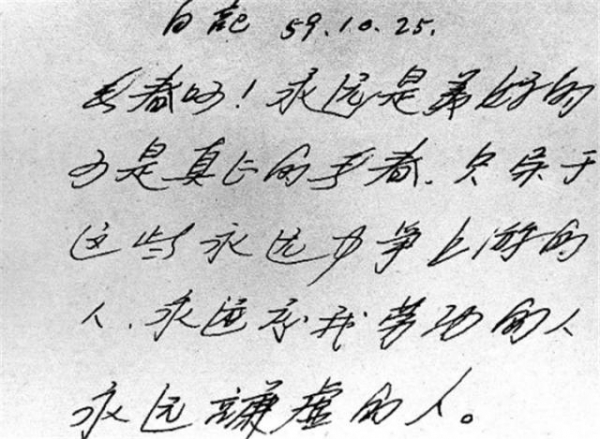 日記 59.10.25.
青春呵!永远是美好的
可是真正的青春.只属于
这些永远力争上游的
人.永远忘我劳动的人
永远謙虚的人。